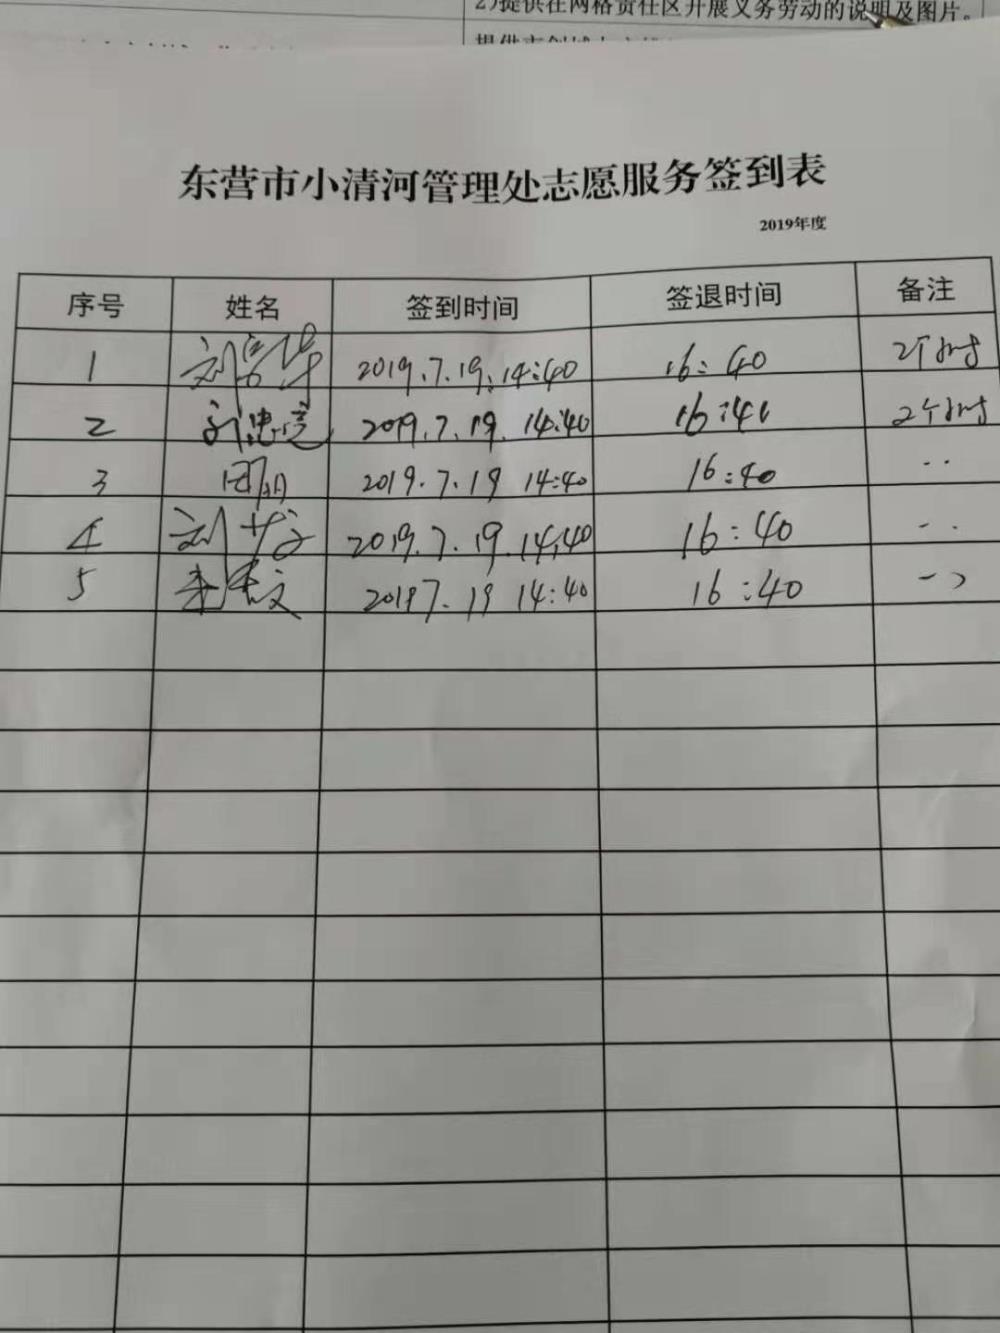 2)提供在网格责任区开展义务劳动的说明及图片。
东营市小清河管理处志愿服务签到表
2019年度
序号 姓名 签到时间 签退时间 备注
1 刘 2019.7.19.14:40 16:40 2个小时
2 2019.7.19. 14:40 16:41 2个小时
3 2019.7.19 14:40 16:40 ..
4 刘 2019.7.19.14:40 16:40 ..
5 20197.19 14:40 16:40